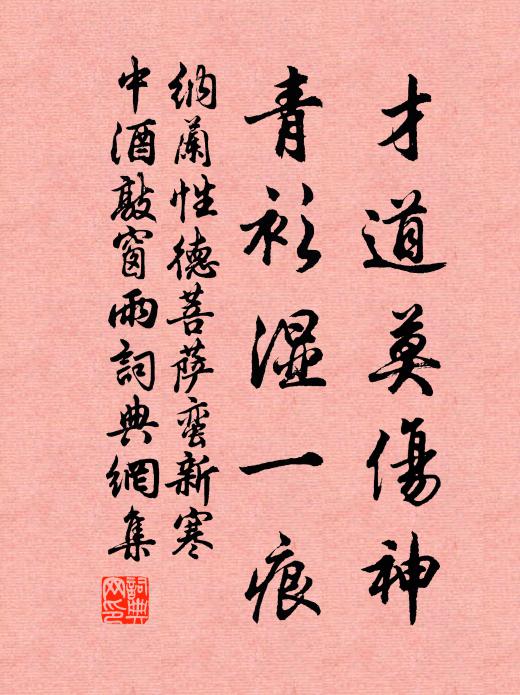 才道莫傷神
青衫湿一痕
納蘭性德菩萨蛮新寒
中酒敲窗雨詞典網集
詞典网印